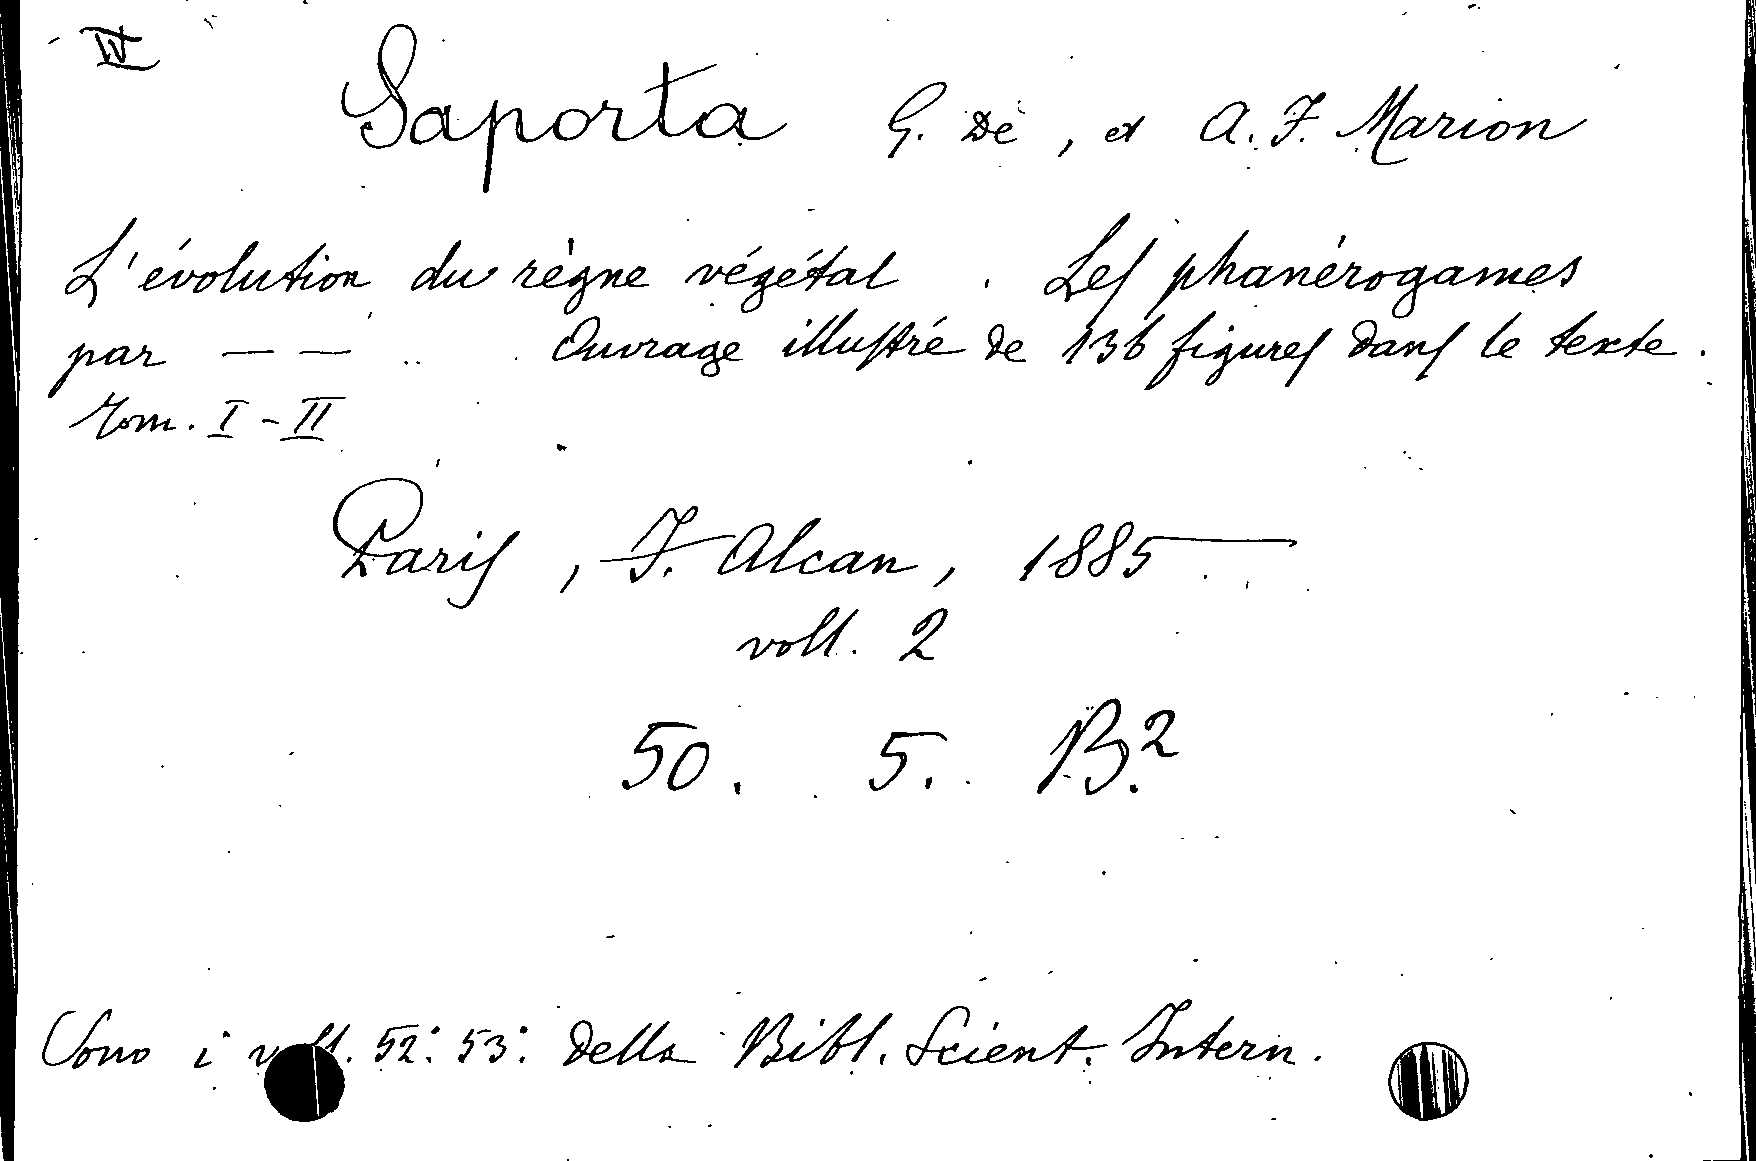 IV
Saporta G. De, et A. F. Marion
L'évolution du règne végétal. Les phanérogames
par — — .. Ouvrage illustré de 136 figures dans le texte.
tom. I - II
Paris, F. Alcan, 1885
voll. 2
50. 5. B.2
Sono i voll. 52.° 53.° della Bibl. Scient. Intern.